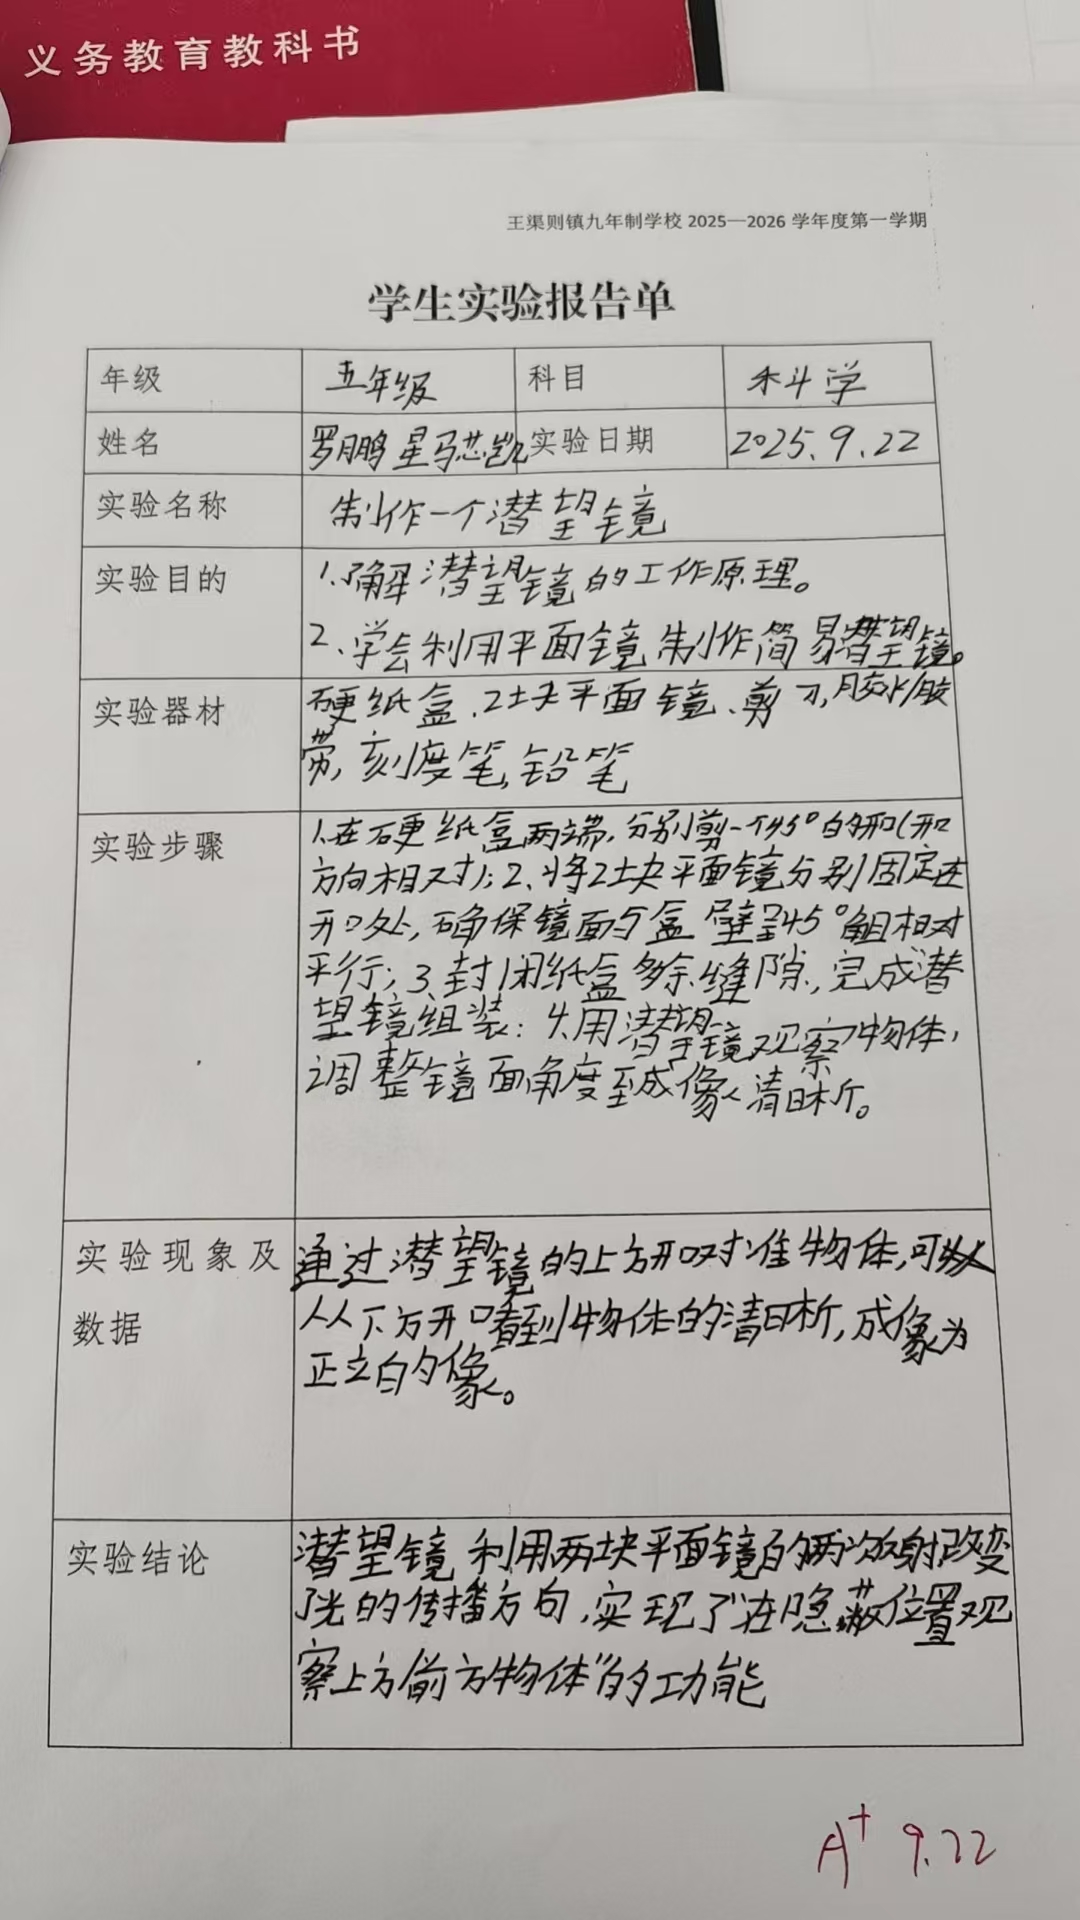 义务教育教科书
王渠则镇九年制学校 2025—2026 学年度第一学期
学生实验报告单
年级 五年级 科目 科学
姓名 罗鹏星马芯凯 实验日期 2025.9.22
实验名称 制作一个潜望镜
实验目的 1.了解潜望镜的工作原理。
2、学会利用平面镜制作简易潜望镜。
实验器材 硬纸盒、2块平面镜、剪刀,胶水/胶
带,刻度笔,铅笔
实验步骤 1.在硬纸盒两端,分别剪一个45°的开口(开口
方向相对);2、将2块平面镜分别固定在
开口处,确保镜面与盒壁呈45°角且相对
平行;3.封闭纸盒多余缝隙,完成潜
望镜组装:4.用潜望镜观察物体,
调整镜面角度至成像清晰。
实验现象及 通过潜望镜的上方开口对准物体,可
数据 以从下方开口看到物体的清晰,成像为
正立的像。
实验结论 潜望镜利用两块平面镜的两次放射改变
了光的传播方向,实现了"在隐蔽位置观
察上方前方物体"的功能
A+ 9.22